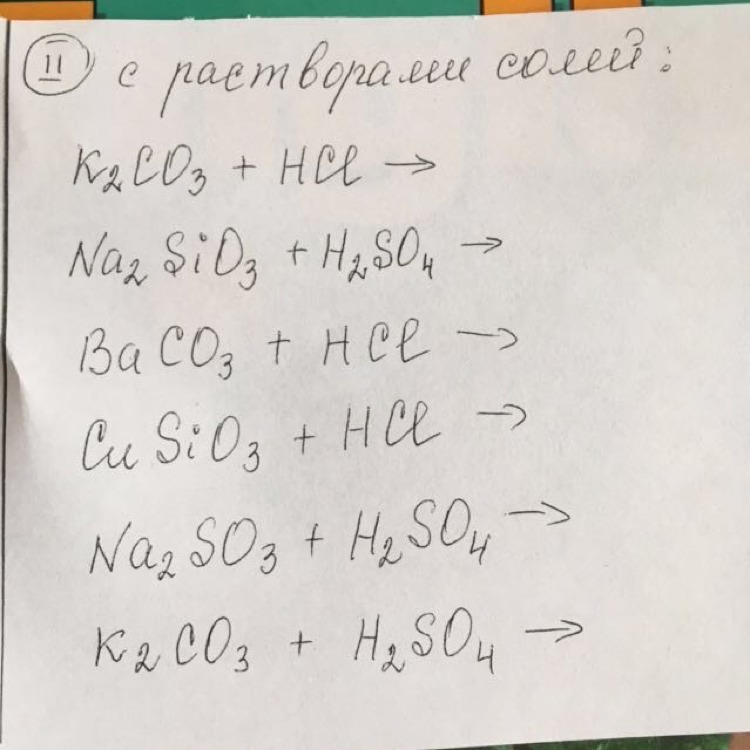 II с растворами солей:
K₂CO₃ + HCl →
Na₂SiO₃ + H₂SO₄ →
BaCO₃ + HCl →
CuSiO₃ + HCl →
Na₂SO₃ + H₂SO₄ →
K₂CO₃ + H₂SO₄ →